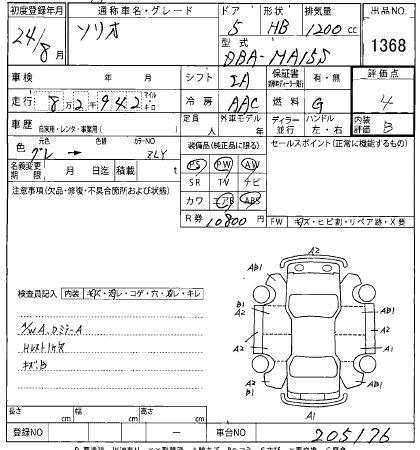 初度登録年月 通称車名・グレード ドア 形状 排気量 出品NO
24/8月 ソリオ 5 HB 1200cc 1368
型式 DBA-MA15S
車検 年 月 シフト IA 保証書 有・無 評価点
走行 8 2 9 4 2 マイル キロ 冷房 AAC 燃料 G 4
車歴 自家用・レンタ・事業用( ) 定員 人 外車モデル 年 ディーラー 並行 ハンドル 左・右 内装評価 B
色 元色 グレ → 色替 カラーNO ZLY 装備品(純正品に限る) セールスポイント(正常に機能するもの)
名義変更期限 月 日迄 積載 t PS PW AW
注意事項(欠品・修復・不具合箇所および状態) SR TV ナビ
カワ エアB ABS
R券 10800円 FW キズ・ヒビ割・リペア跡・X
A2
AB1 AB1
B1 A2
A2 B1
A2 A2
A2 AB1
A1
検査員記入 内装 キズ・汚レ・コゲ・穴・スレ・キレ
N/W A、DミラーA
Hレスト1ケ欠
キズB
長さ cm 幅 cm 高さ cm
登録NO — 車台NO 205176